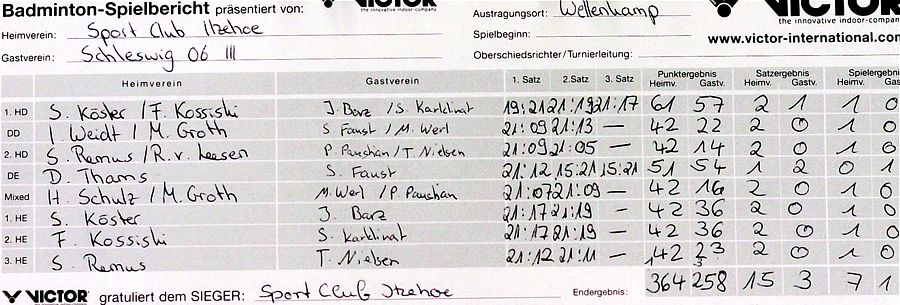 Badminton-Spielbericht präsentiert von: VICTOR the innovative indoor-company Austragungsort: Wellenkamp VICTOR the innovative indoor-company
Heimverein: Sport Club Itzehoe Spielbeginn: www.victor-international.com
Gastverein: Schleswig 06 III Oberschiedsrichter/Turnierleitung:
Heimverein Gastverein 1. Satz 2. Satz 3. Satz Punktergebnis Heimv. Gastv. Satzergebnis Heimv. Gastv. Spielergebnis Heimv. Gastv.
1. HD S. Köster / F. Kossiski J. Barz / S. Karklinat 19:21 21:19 21:17 61 57 2 1 1 0
DD I. Weidt / M. Groth S. Faust / M. Werl 21:09 21:13 — 42 22 2 0 1 0
2. HD S. Remus / R. v. Leesen P. Paushan / T. Nielsen 21:09 21:05 — 42 14 2 0 1 0
DE D. Thams S. Faust 21:12 15:21 15:21 51 54 1 2 0 1
Mixed H. Schulz / M. Groth M. Werl / P. Paushan 21:07 21:09 — 42 16 2 0 1 0
1. HE S. Köster J. Barz 21:17 21:19 — 42 36 2 0 1 0
2. HE F. Kossiski S. Karklinat 21:17 21:19 — 42 36 2 0 1 0
3. HE S. Remus T. Nielsen 21:12 21:11 — 42 23 2 0 1 0
VICTOR gratuliert dem SIEGER: Sport Club Itzehoe Endergebnis: 364 258 15 3 7 1